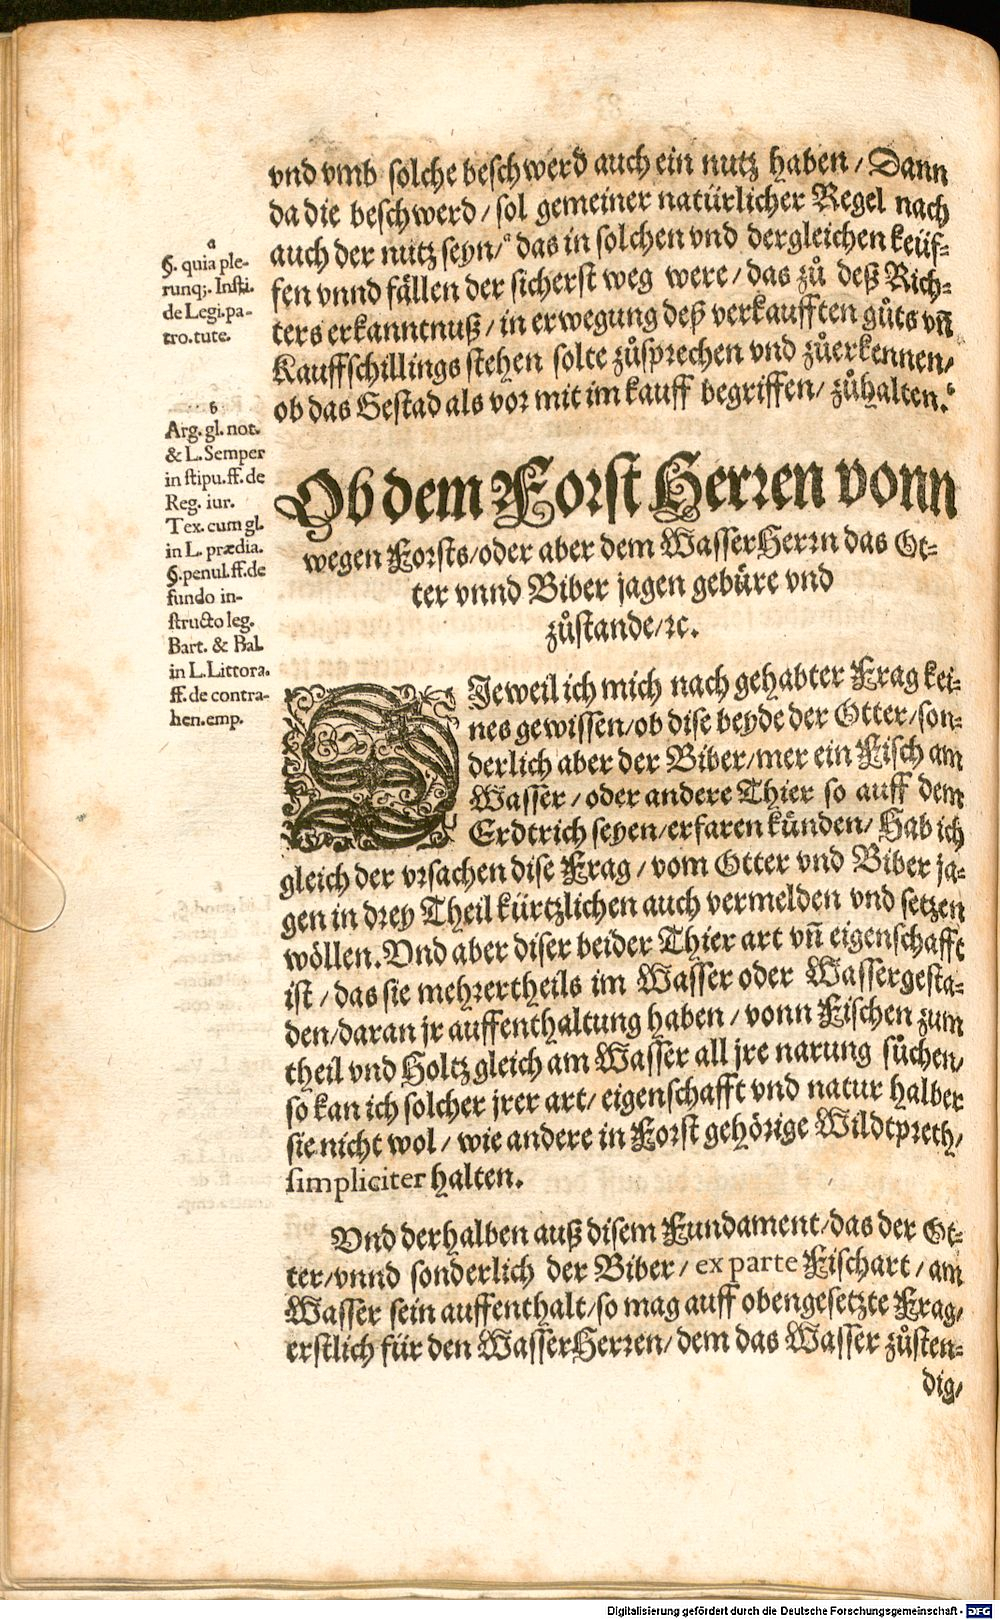 vnd vmb solche beschwerd auch ein nutz haben / Dann
da die beschwerd / sol gemeiner natürlicher Regel nach
auch der nutz seyn / a das in solchen vnd dergleichen keüf-
fen vnnd fällen der sicherst weg were / das zů deß Rich-
ters erkanntnuß / in erwegung deß verkaufften gůts vñ
Kauffschillings stehen solte zůsprechen vnd zůerkennen /
ob das Gestad als vor mit im kauff begriffen / zůhalten. b
a
§. quia ple-
runq;. Insti.
de Legi. pa-
tro. tute.
b
Arg. gl. not.
& L. Semper
in stipu. ff. de
Reg. iur.
Tex. cum gl.
in L. prædia.
§. penul. ff. de
fundo in-
structo leg.
Bart. & Bal.
in L. Littora.
ff. de contra-
hen. emp.
Ob dem Forst Herren vonn
wegen Forsts / oder aber dem WasserHerrn das Ot-
ter vnnd Biber jagen gebüre vnd
zůstande / ꝛc.
DJeweil ich mich nach gehabter Frag kei-
nes gewissen / ob dise beyde der Otter / son-
derlich aber der Biber / mer ein Fisch am
Wasser / oder andere Thier so auff dem
Erdtrich seyen / erfaren künden / Hab ich
gleich der vrsachen dise Frag / vom Otter vnd Biber ja-
gen in drey Theil kürtzlichen auch vermelden vnd setzen
wöllen. Vnd aber diser beider Thier art vñ eigenschafft
ist / das sie mehrertheils im Wasser oder Wassergesta-
den / daran jr auffenthaltung haben / vonn Fischen zum
theil vnd Holtz gleich am Wasser all jre narung süchen /
so kan ich solcher jrer art / eigenschafft vnd natur halber
sie nicht wol / wie andere in Forst gehörige Wildtpreth /
simpliciter halten.
Vnd derhalben auß disem Fundament / das der Ot-
ter / vnnd sonderlich der Biber / ex parte Fischart / am
Wasser sein auffenthalt / so mag auff obengesetzte Frag /
erstlich für den WasserHerren / dem das Wasser zůsten-
dig /
Digitalisierung gefördert durch die Deutsche Forschungsgemeinschaft - DFG